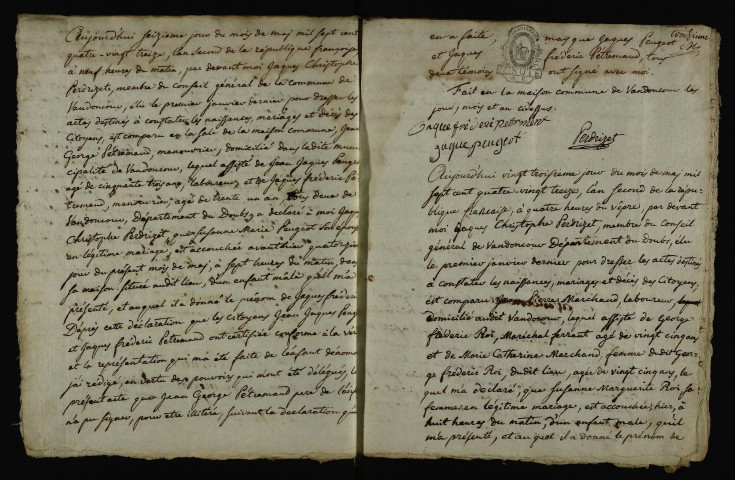 Aujourd'hui seizieme jour du mois de mai mil sept cent
quatre-vingt treize, l'an second de la république françoise
à neuf heures du matin, par devant moi Jaques Christophe
Perdrizet, membre du Conseil général de la commune de
Vandoncour, élu le premier janvier dernier pour dresser les
actes destinés à constater les naissances, mariages et décès des
Citoyens, est comparu en la sale de la maison commune, Jean
George Pétremand, manouvrier, domicilié dans ladite muni-
cipalité de Vandoncour, lequel assisté de Jean Jaques Peugeot
agé de cinquante trois ans, laboureur, et de Jaques fréderic Pé-
tremand, manouvrier, agé de trente un an, tous deux de
Vandoncour, Département du Doubs, a déclaré à moi Jaques
Christophe Perdrizet, que Susanne Marie Peugeot son épouse
en légitime mariage, est accouchée avanthier quatorzieme
jour du présent mois de mai, à sept heures du matin, dans
sa maison située audit lieu, d'un enfant mâle qu'il m'a
présenté, et auquel il a donné le prénom de Jaques fréderic
D'après cette déclaration que les citoyens Jean Jaques Peugeot
et Jaques fréderic Pétremand ont certifiée conforme à la vérité
et la représentation qui m'a été faite de l'enfant dénommé
j'ai rédigé, en vertu des pouvoirs qui m'ont été délégués, le
présent acte que Jean George Pétremand pere de l'enfant
n'a pu signer, pour etre illitéré, suivant la déclaration qu'il
en a faite, mais que Jaques Peugeot
et Jaques fréderic Pétremand, tous
deux témoins ont signé avec moi.
Fait en la maison commune de Vandoncour les
jour, mois et an cidessus.
Jaque fréderic petremant
jaque peugeot Perdrizet
Aujourd'hui vingt troisieme jour du mois de mai mil
sept cent quatre vingt treize, l'an second de la répu-
blique françaize, à quatre heures du vêpre, par devant
moi Jaques Christophe Perdrizet, membre du Conseil
général de Vandoncour Département du Doubs, élu
le premier janvier dernier pour dresser les actes destinés
à constater les naissances, mariages et décès des Citoyens,
est comparu Pierre Marchand, laboureur,
domicilié audit Vandoncour, lequel assisté de George
fréderic Roi, Maréchal ferrant agé de vingt cinq ans,
et de Marie Catharine Marchand, femme dudit Geor-
ge fréderic Roi, dudit lieu, agée de vingt cinq ans, le
quel m'a déclaré, que Susanne Marguerite Roi sa
femme en légitime mariage, est accouchée, hier, à
huit heures du matin, d'un enfant male, qu'il
m'a présenté, et au quel il a donné le prénom de